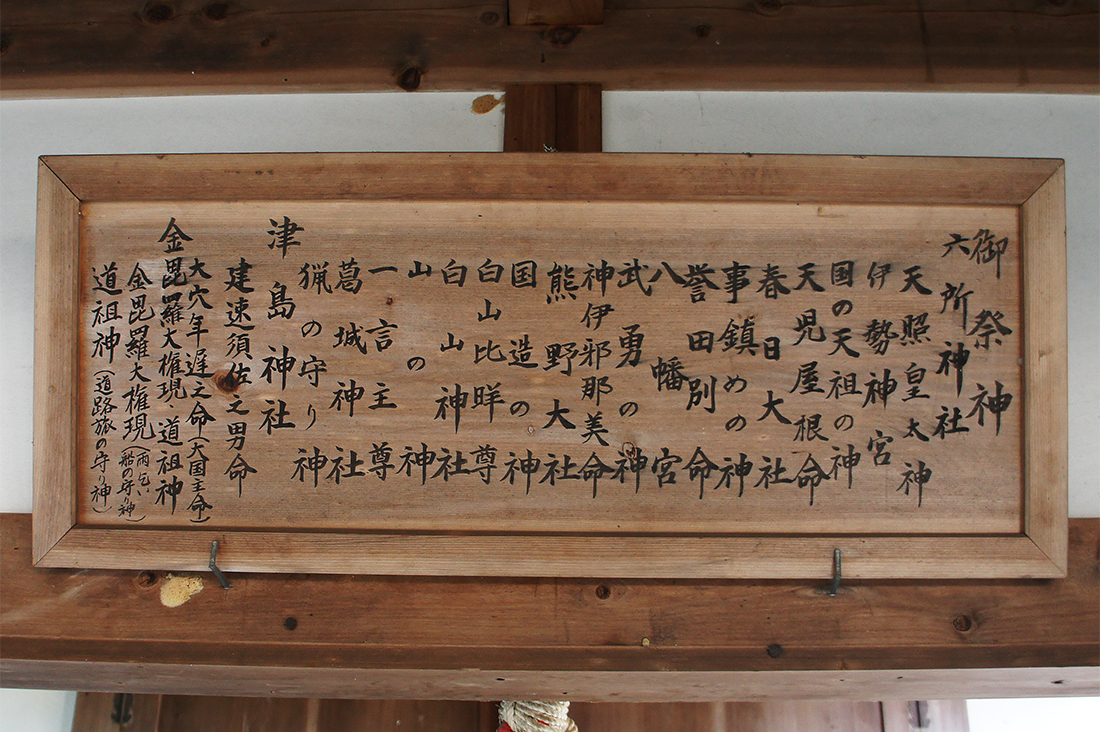 御祭神
六所神社
天照皇太神
伊勢神宮
国の天祖の神
天児屋根命
春日大社
事鎮めの神
誉田別命
八幡宮
武勇の神
神伊邪那美命
熊野大社
国造の神
白山比咩尊
白山神社
山の神
一言主尊
葛城神社
猟の守り神
津島神社
建速須佐之男命
大穴年遅之命(大国主命)
金毘羅大権現・道祖神
金毘羅大権現(雨乞い船の守り神)
道祖神(道路旅の守り神)